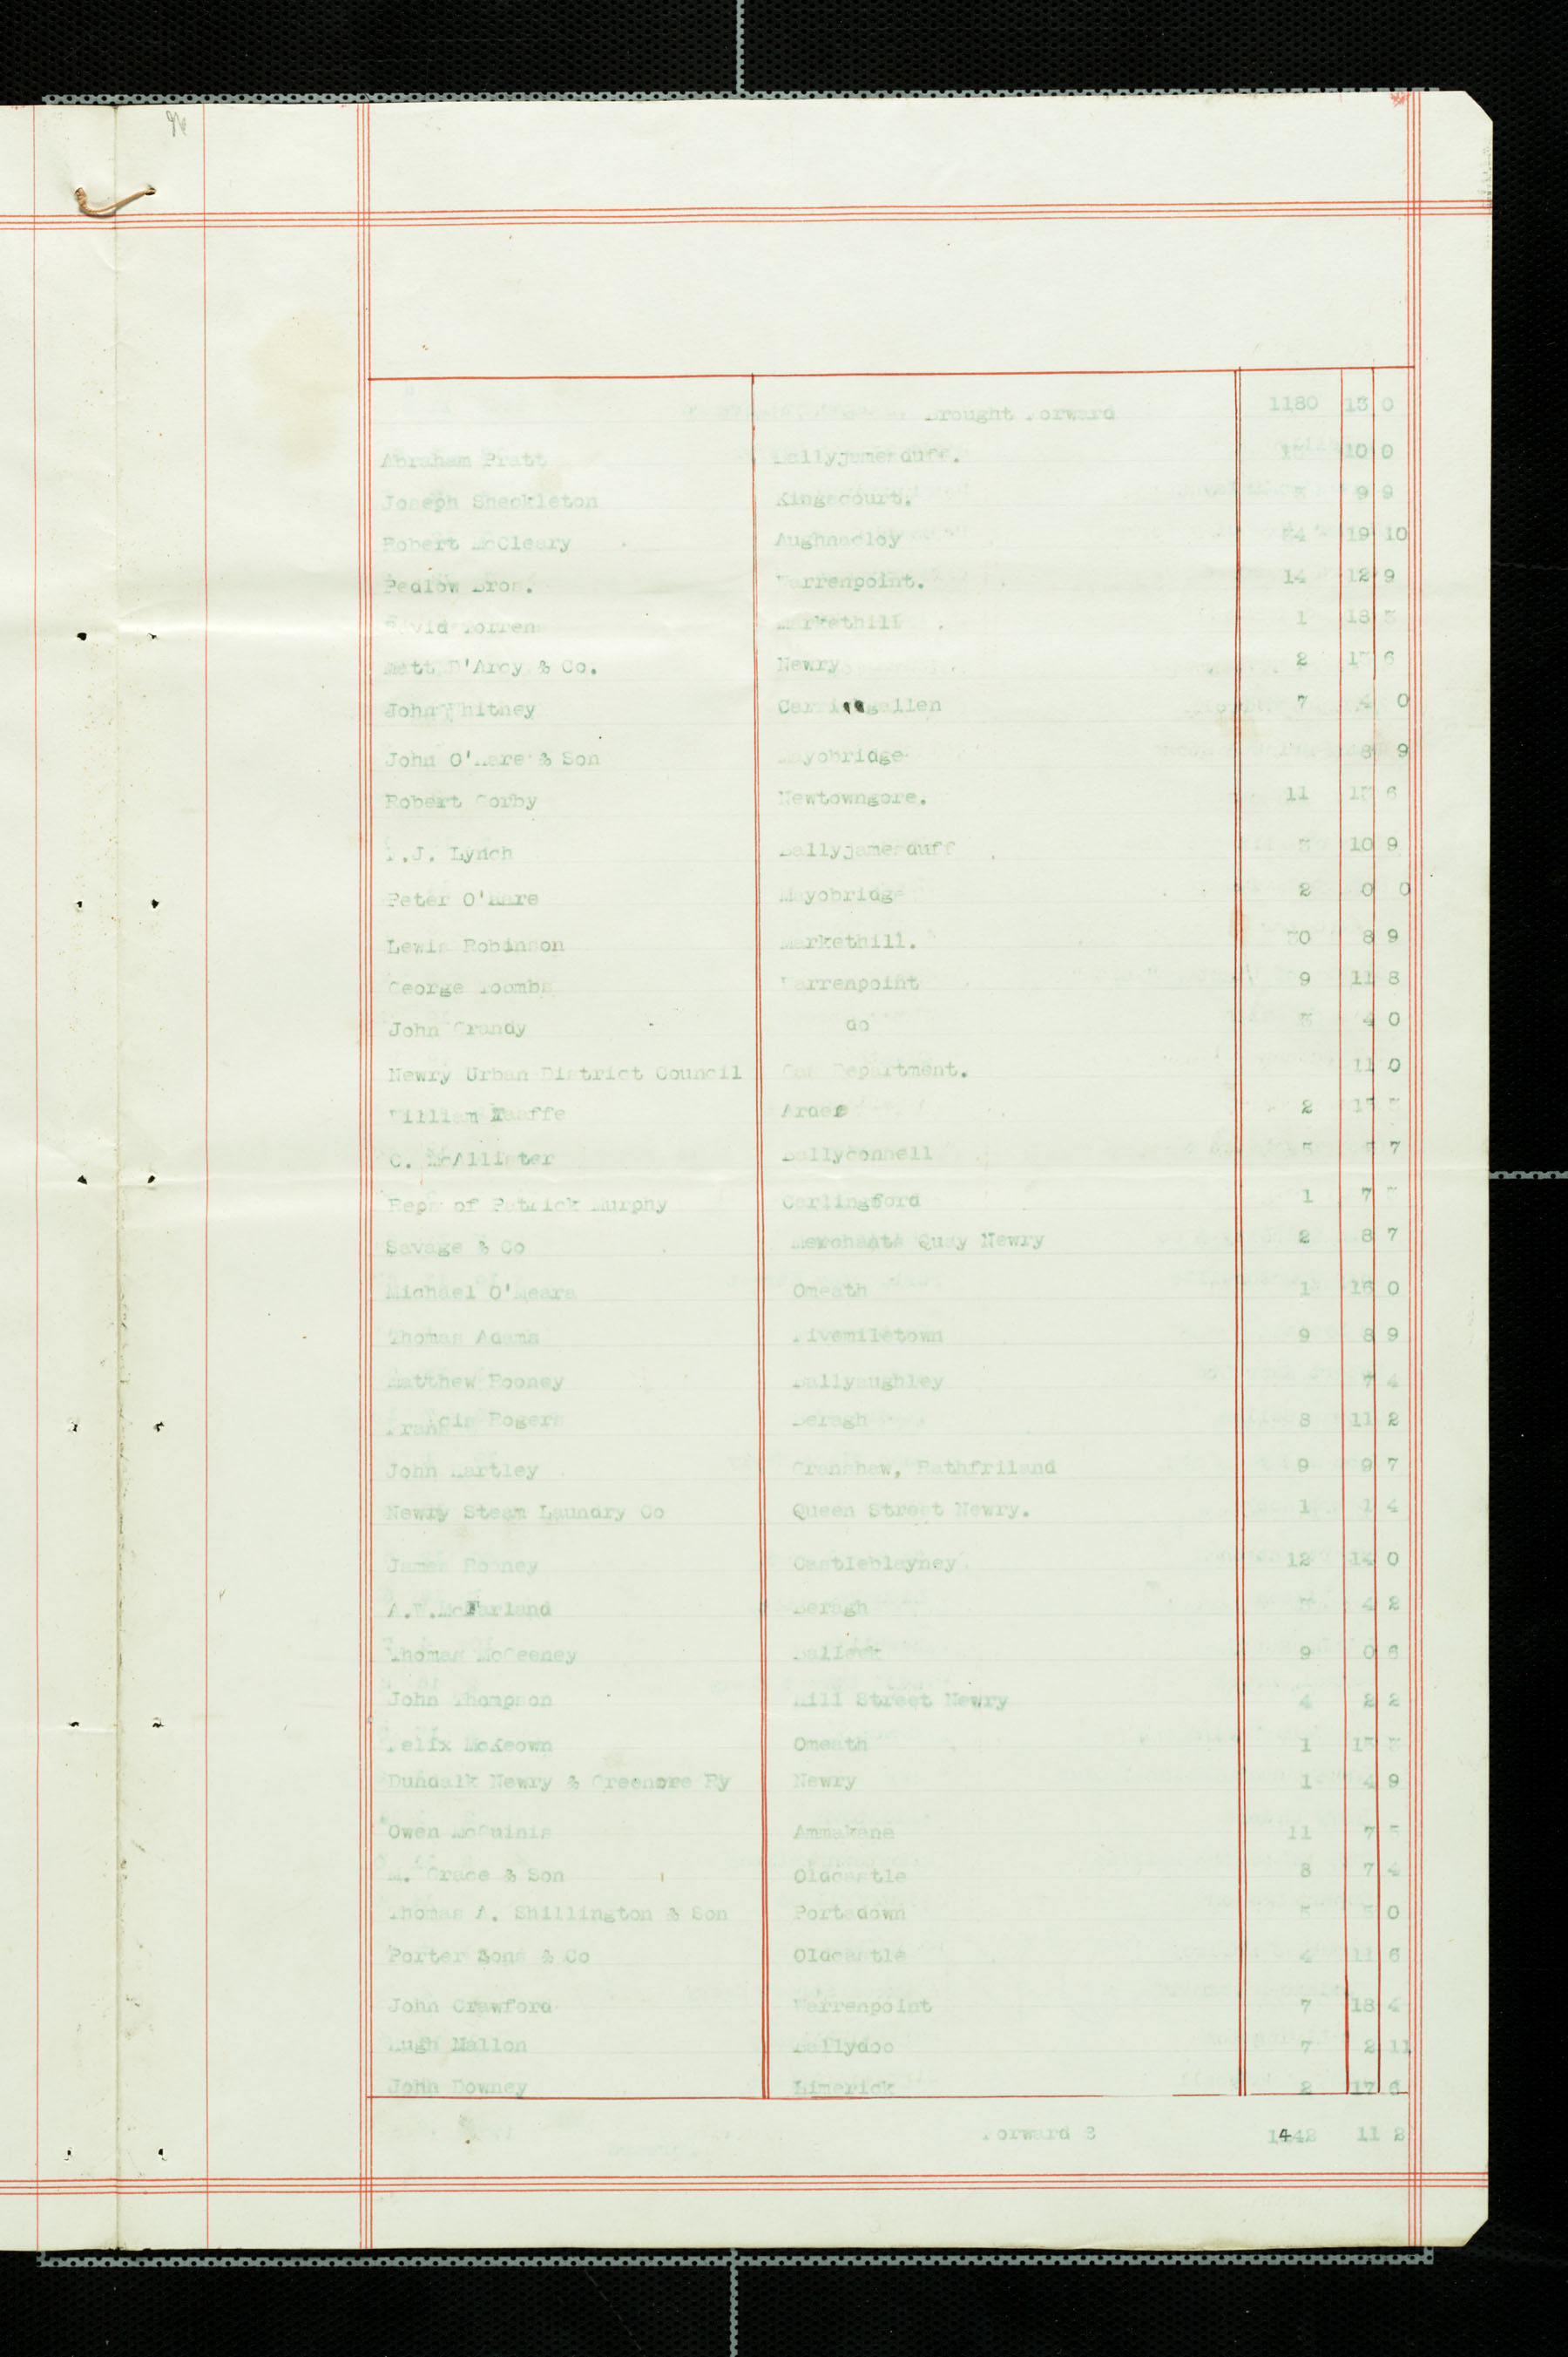 Brought Forward 1180 13 0
Abraham Pratt Ballyjamesduff. 10 0
Joseph Sheckleton Kingscourt. 9 9
Robert McCleary Aughnacloy 19 10
Pedlow Bros. Warrenpoint. 14 12 9
David Torrens Markethill 1 18
Matt D'Arcy & Co. Newry 2 13 6
John Whitney Carrigallen 7 4 0
John O'Hare & Son Mayobridge 8 9
Robert Corby Newtowngore. 11 13 6
J. Lynch Ballyjamesduff 3 10 9
Peter O'Hare Mayobridge 2 0 0
Lewis Robinson Markethill. 30 8 9
George Toombs Warrenpoint 9 11 8
John Grandy do 3 4 0
Newry Urban District Council Gas Department. 11 0
William Taaffe Ardee 2
C. McAllister Ballyconnell 7
Reps of Patrick Murphy Carlingford 1 7
Savage & Co Merchants Quay Newry 2 8 7
Michael O'Meara Omeath 1 16 0
Thomas Adams Fivemiletown 9 8 9
Matthew Rooney Ballyaughley 7 4
Francis Rogers Beragh 8 11 2
John Hartley Cranshaw, Rathfriland 9 9 7
Newry Steam Laundry Co Queen Street Newry. 1 1 4
James Rooney Castleblayney 12 14 0
A. McFarland Beragh 3 4 2
Thomas McGeeney Balleek 9 0 6
John Thompson Hill Street Newry 4 2 2
Felix McKeown Omeath 1
Dundalk Newry & Greenore Ry Newry 1 4 9
Owen McGuinis Ammakane 11 7 5
M. Grace & Son Oldcastle 8 7 4
Thomas A. Shillington & Son Portadown 0
Porter Sons & Co Oldcastle 4 11 6
John Crawford Warrenpoint 7 18 4
Hugh Mallon Ballydoo 7 2 11
John Downey Limerick 2 17 6
Forward £ 1442 11 2